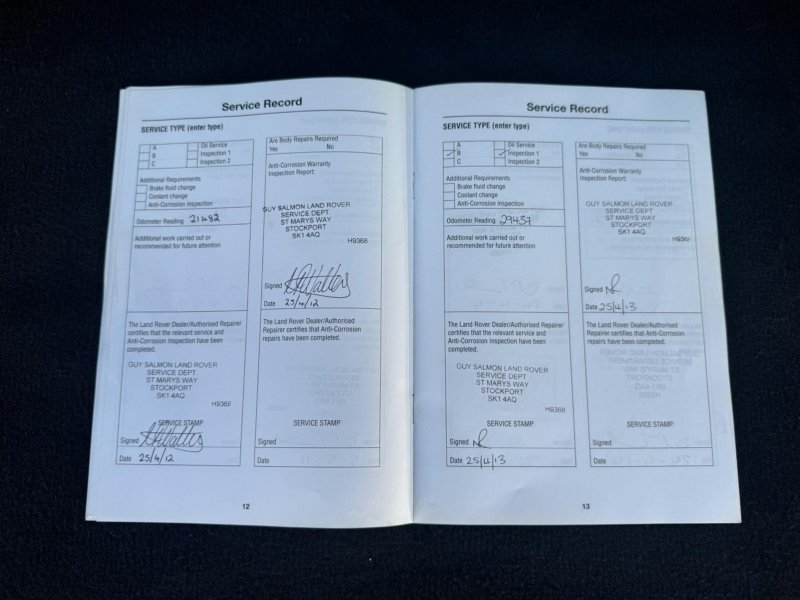 Service Record
SERVICE TYPE (enter type)
A
B
C
Oil Service
Inspection 1
Inspection 2
Additional Requirements
Brake fluid change
Coolant change
Anti-Corrosion inspection
Odometer Reading 21482
Additional work carried out or
recommended for future attention
The Land Rover Dealer/Authorised Repairer
certifies that the relevant service and
Anti-Corrosion Inspection have been
completed.
GUY SALMON LAND ROVER
SERVICE DEPT
ST MARYS WAY
STOCKPORT
SK1 4AQ
H9368
SERVICE STAMP
Signed
Date 25/4/12
Are Body Repairs Required
Yes No
Anti-Corrosion Warranty
Inspection Report:
GUY SALMON LAND ROVER
SERVICE DEPT
ST MARYS WAY
STOCKPORT
SK1 4AQ
H9368
Signed
Date 25/4/12
The Land Rover Dealer/Authorised
Repairer certifies that Anti-Corrosion
repairs have been completed.
SERVICE STAMP
Signed
Date
12
Service Record
SERVICE TYPE (enter type)
A
B
C
Oil Service
Inspection 1
Inspection 2
Additional Requirements
Brake fluid change
Coolant change
Anti-Corrosion inspection
Odometer Reading 29437
Additional work carried out or
recommended for future attention
The Land Rover Dealer/Authorised Repairer
certifies that the relevant service and
Anti-Corrosion Inspection have been
completed.
GUY SALMON LAND ROVER
SERVICE DEPT
ST MARYS WAY
STOCKPORT
SK1 4AQ
H9368
SERVICE STAMP
Signed
Date 25/4/13
Are Body Repairs Required
Yes No
Anti-Corrosion Warranty
Inspection Report:
GUY SALMON LAND ROVER
SERVICE DEPT
ST MARYS WAY
STOCKPORT
SK1 4AQ
H9368
Signed
Date 25/4/13
The Land Rover Dealer/Authorised
Repairer certifies that Anti-Corrosion
repairs have been completed.
SERVICE STAMP
Signed
Date
13